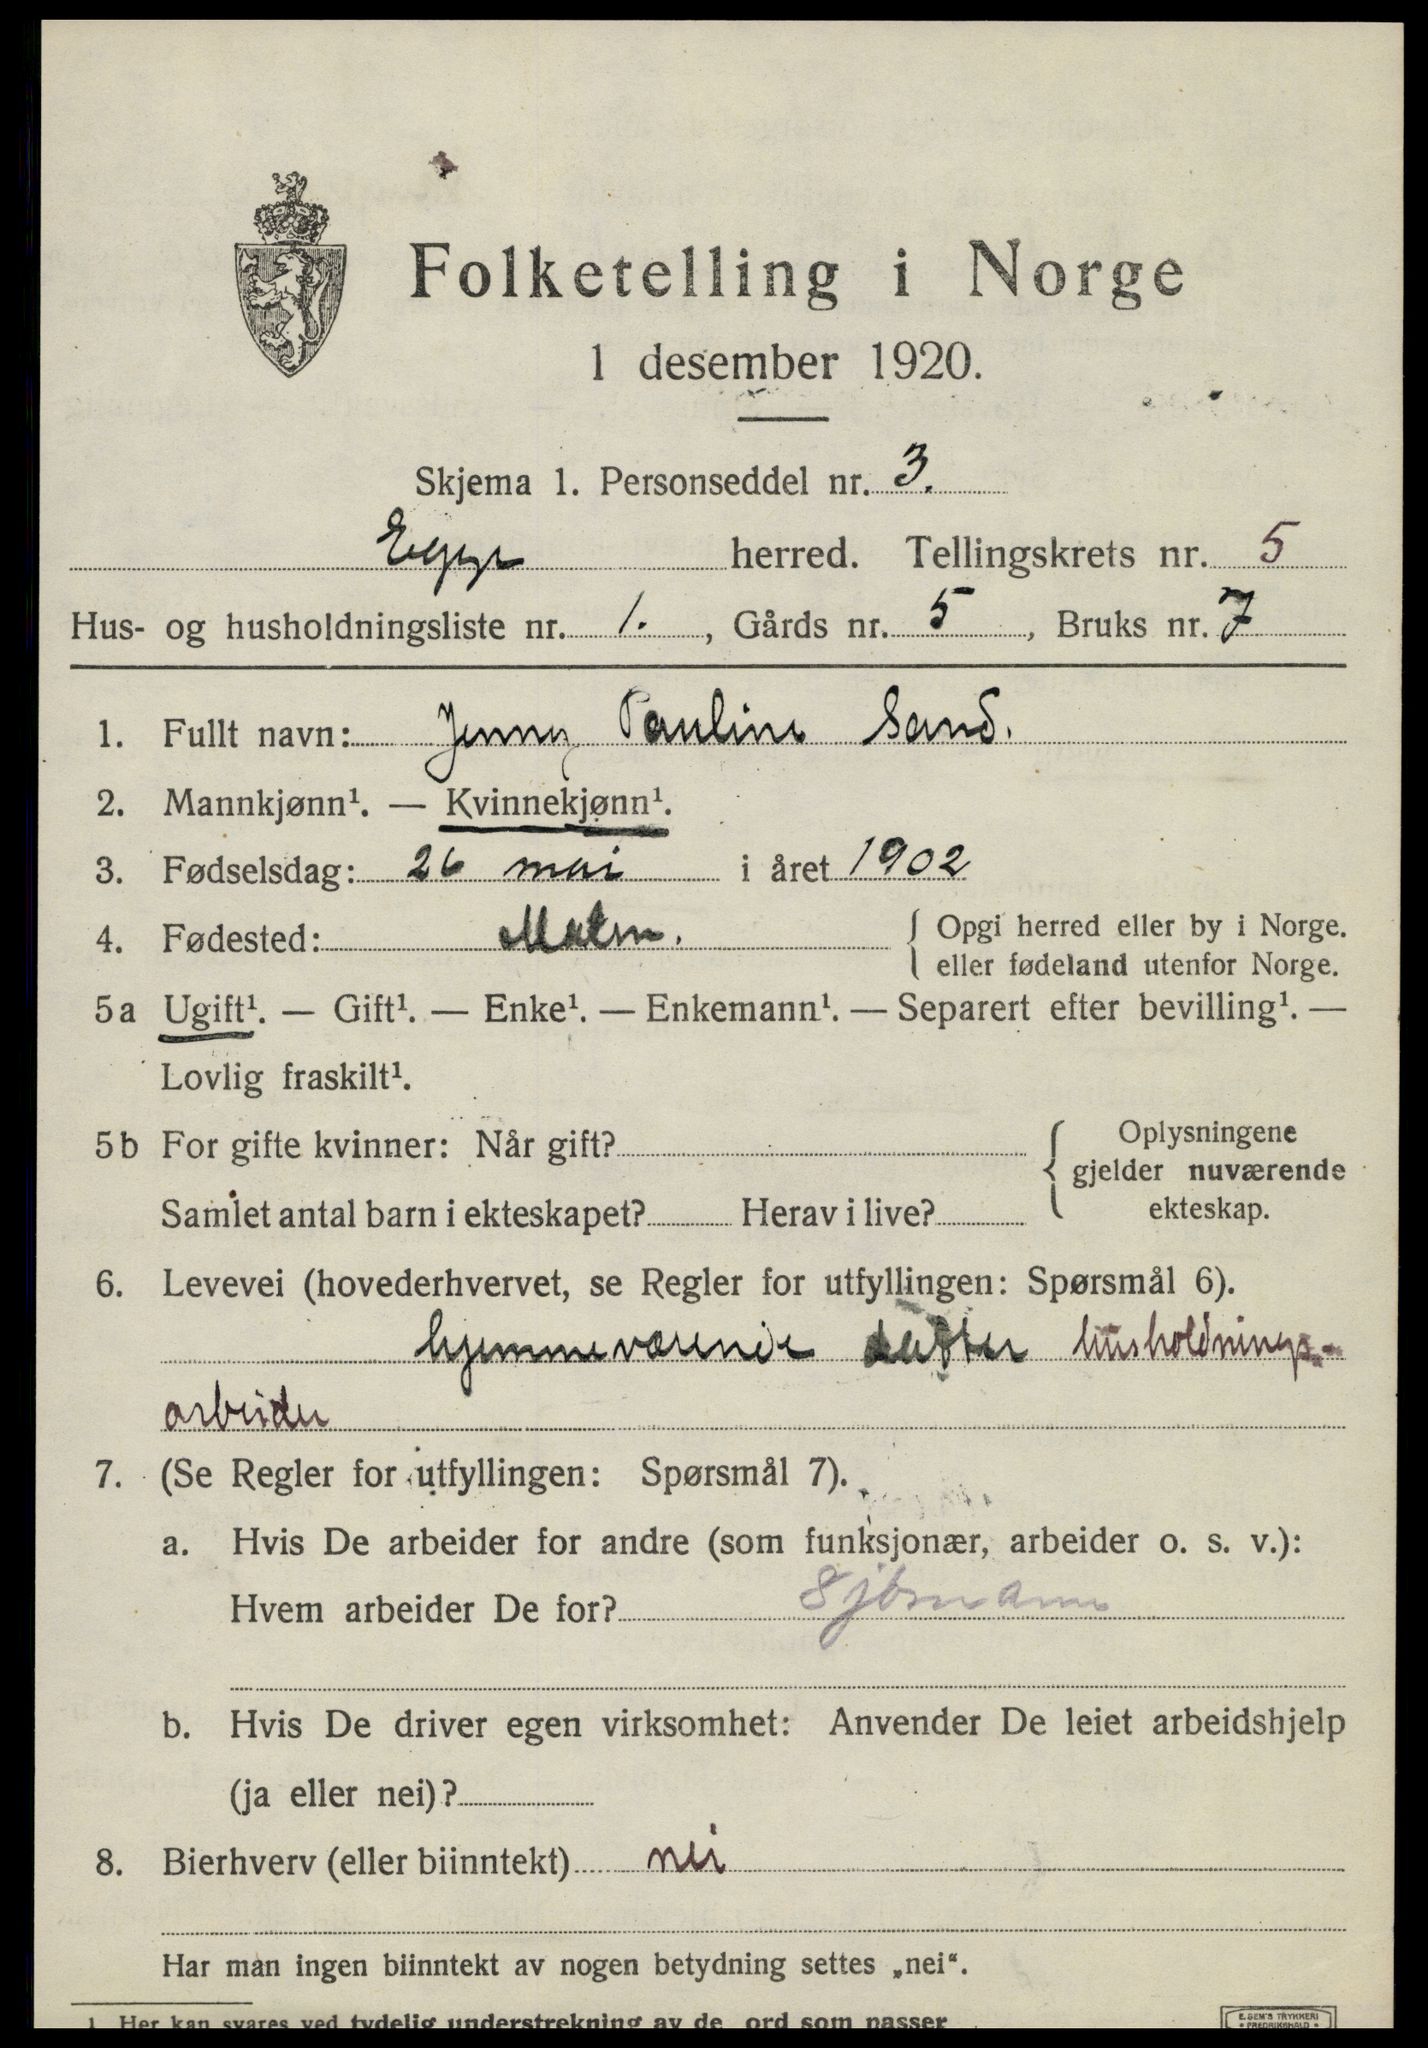 Folketelling i Norge
1 desember 1920.
Skjema 1. Personseddel nr. 3.
Egge herred. Tellingskrets nr. 5
Hus- og husholdningsliste nr. 1., Gårds nr. 5, Bruks nr. 7
1. Fullt navn: Jenny Pauline Sand.
2. Mannkjønn¹. — Kvinnekjønn¹.
3. Fødselsdag: 26 mai i året 1902
4. Fødested: Malm. { Opgi herred eller by i Norge.
eller fødeland utenfor Norge.
5a Ugift¹. — Gift¹. — Enke¹. — Enkemann¹. — Separert efter bevilling¹. —
Lovlig fraskilt¹.
5b For gifte kvinner: Når gift? { Oplysningene
gjelder nuværende
Samlet antal barn i ekteskapet? Herav i live? ekteskap.
6. Levevei (hovederhvervet, se Regler for utfyllingen: Spørsmål 6).
hjemmeværende datter husholdnings-
arbeider
7. (Se Regler for utfyllingen: Spørsmål 7).
a. Hvis De arbeider for andre (som funksjonær, arbeider o. s. v.):
Hvem arbeider De for? Sjömann
b. Hvis De driver egen virksomhet: Anvender De leiet arbeidshjelp
(ja eller nei)?
8. Bierhverv (eller biinntekt) nei
Har man ingen biinntekt av nogen betydning settes „nei“.
1 Her kan svares ved tydelig understrekning av de ord som passer
E. SEM'S TRYKKERI
• FREDRIKSHALD •